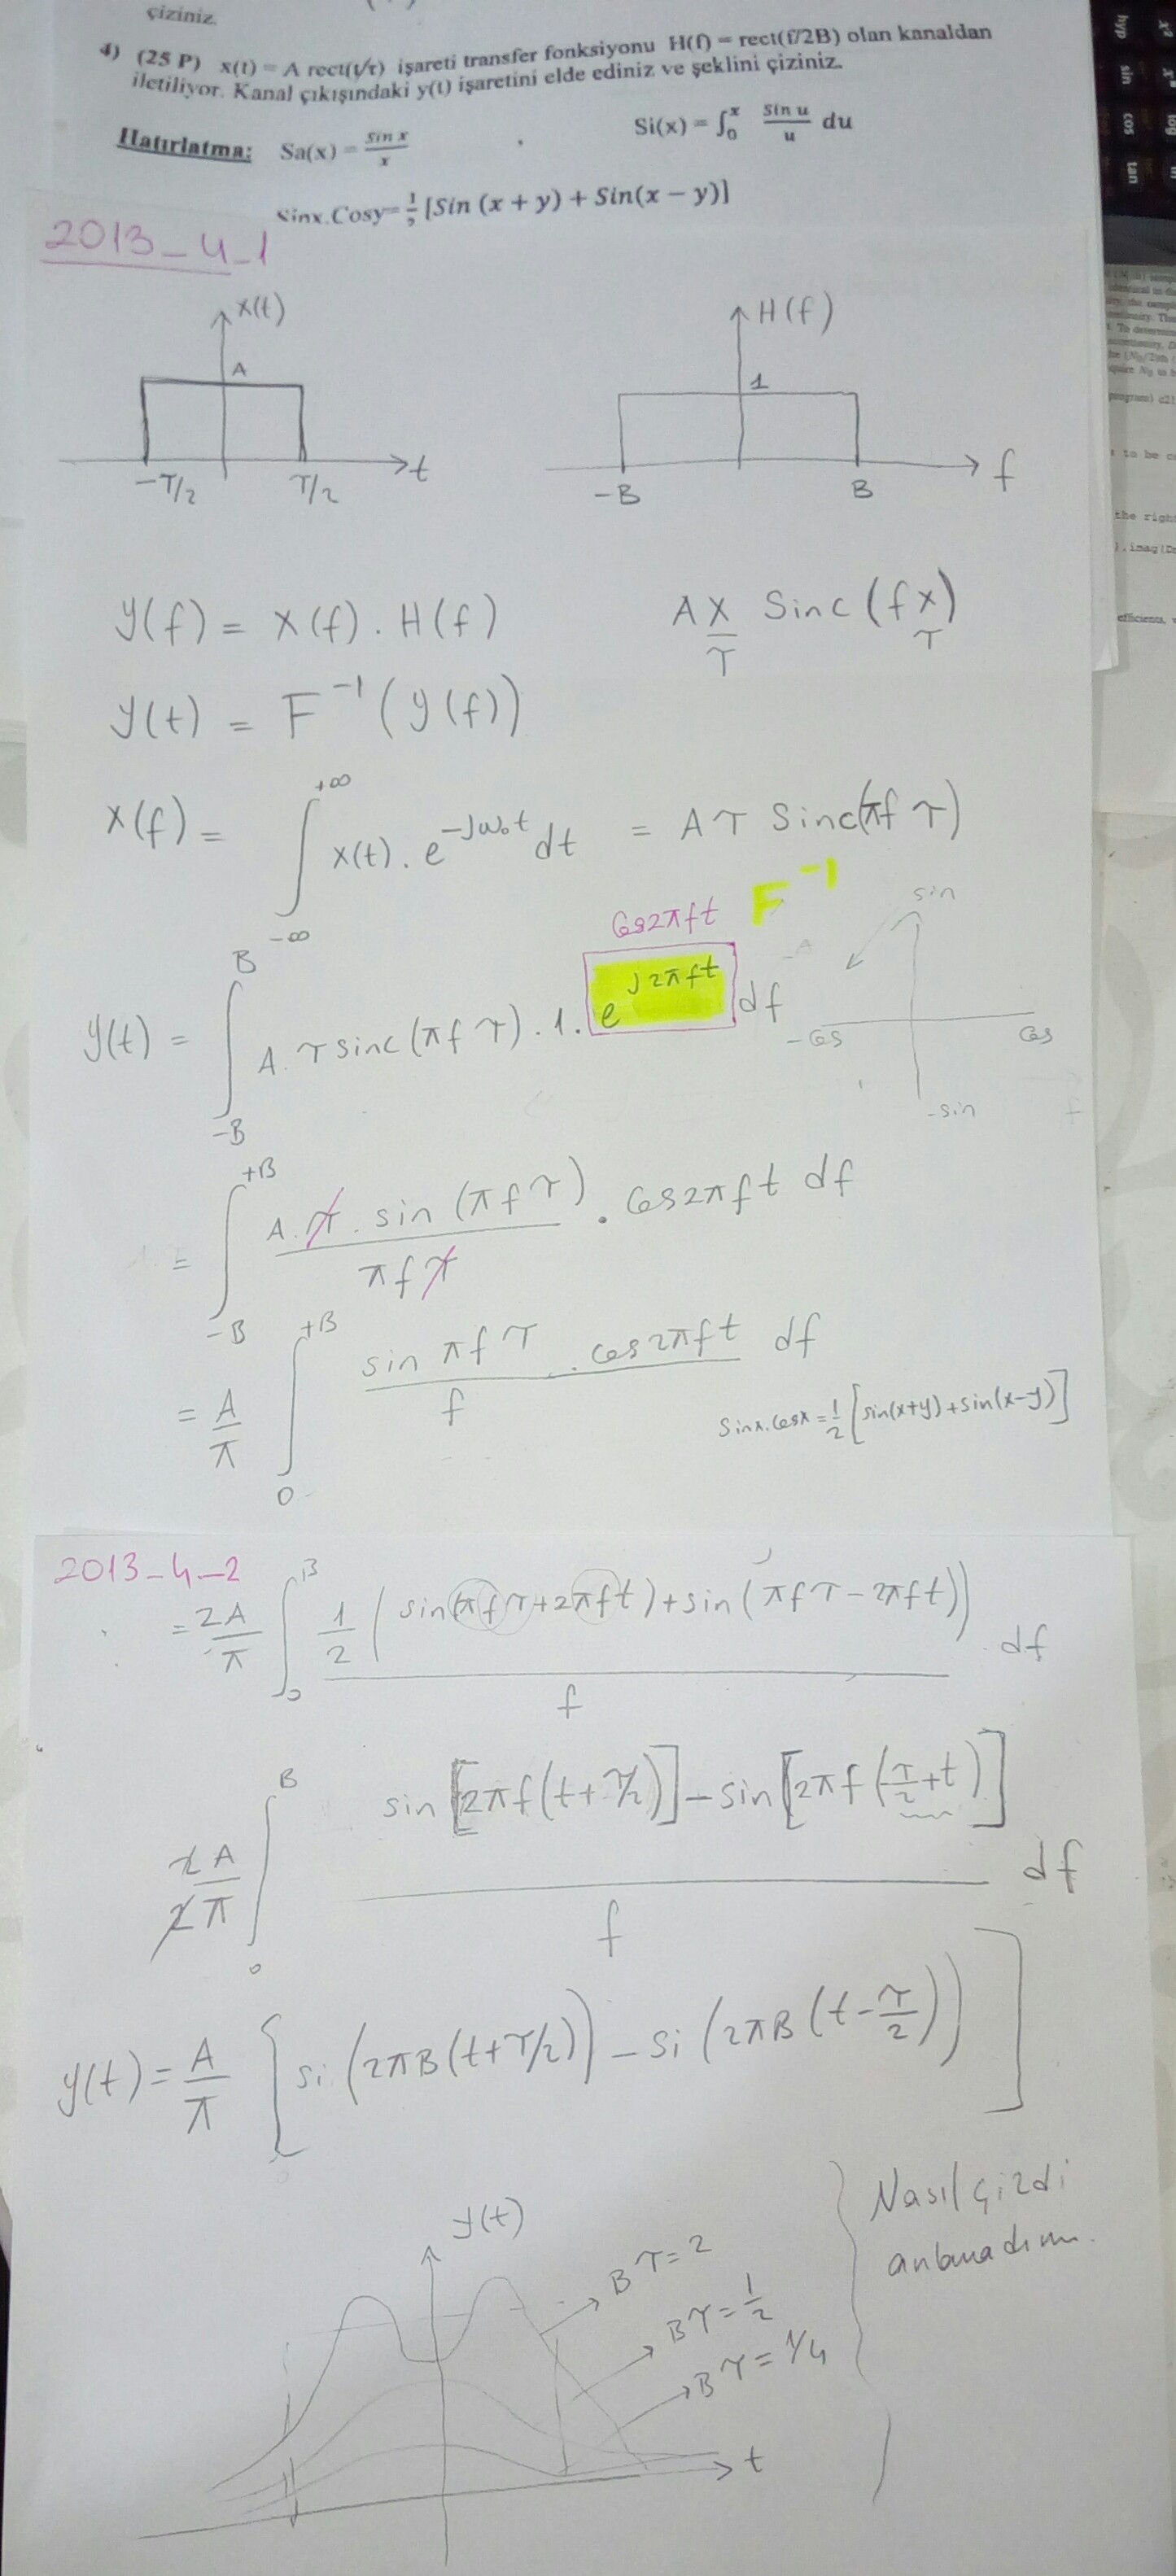 çiziniz.
4) (25 P) x(t) = A rect(t/τ) işareti transfer fonksiyonu H(f) = rect(f/2B) olan kanaldan
iletiliyor. Kanal çıkışındaki y(t) işaretini elde ediniz ve şeklini çiziniz.
Hatırlatma: Sa(x) = sin x / x , Si(x) = ∫₀ˣ sin u / u du
Sinx.Cosy= ½ [Sin (x + y) + Sin(x − y)]
2013_4_1
x(t)
A
-τ/2 τ/2 t
H(f)
1
-B B f
y(f) = x(f) . H(f) Aτ Sinc(fτ)
y(t) = F⁻¹(y(f))
x(f) = ∫_{-∞}^{+∞} x(t) . e^{-Jw₀t} dt = Aτ Sinc(πf τ)
Cos2πft F⁻¹
y(t) = ∫_{-B}^{B} A. τ sinc(πf τ) . 1 . e^{J2πft} df
sin
-cos cos
-sin
= ∫_{-B}^{+B} A.τ. sin(πfτ) / πfτ . Cos2πft df
= A/π ∫_0^{+B} sin πfτ . cos2πft / f df
Sinx.Cosx = ½ [sin(x+y) + sin(x-y)]
2013_4_2
= 2A/π ∫_0^B ½ (sin(πfτ+2πft) + sin(πfτ-2πft)) / f df
2A/2π ∫_0^B sin[2πf(t+τ/2)] - sin[2πf(τ/2+t)] / f df
y(t) = A/π [si(2πB(t+τ/2)) - si(2πB(t-τ/2))]
y(t)
Bτ=2
Bτ=½
Bτ=1/4
t
Nasıl çizdi
anlamadım.
hyp sin cos tan
log
to be
the right
).imag(
efficients,